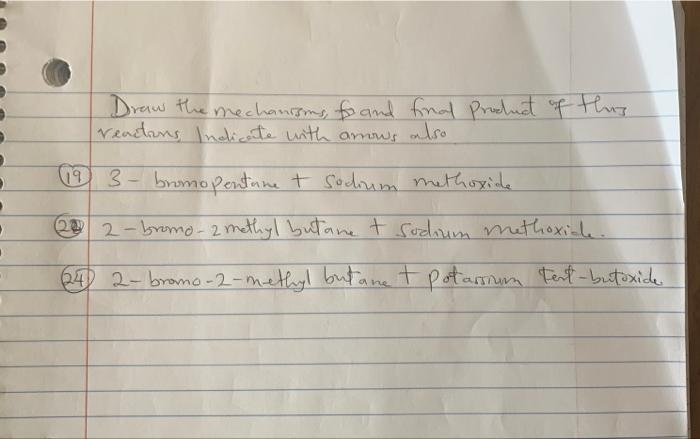 Draw the mechanisms, and final Product of this
reactions, Indicate with arrows also
19 3- bromopentane + Sodium methoxide
2-bromo-2methyl butane + Sodium methoxide.
24 2-bromo-2-methyl butane + potassium tert-butoxide